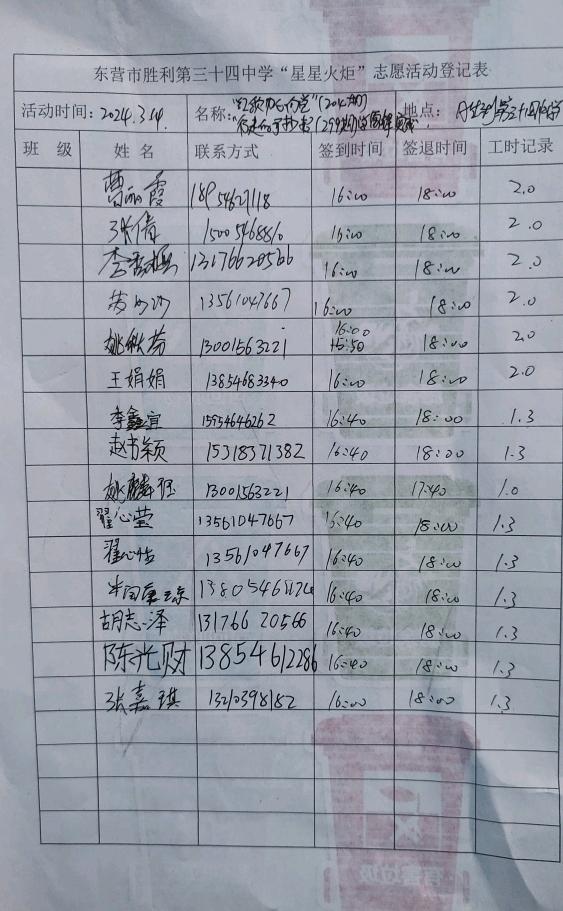 东营市胜利第三十四中学“星星火炬”志愿活动登记表
活动时间：2024.3.14 名称： 地点：
班 级 姓 名 联系方式 签到时间 签退时间 工时记录
曹丽霞 18954627118 16:00 18:00 2.0
张倩 15005468810 16:00 18:00 2.0
13176620566 16:00 18:00 2.0
13561047667 16:00 18:00 2.0
姚秋芬 13001563221 16:00 18:00 2.0
王娟娟 13854683340 16:00 18:00 2.0
李鑫宜 15954646262 16:40 18:00 1.3
赵书颖 15318371382 16:40 18:00 1.3
姚麟珏 13001563221 16:40 17:40 1.0
翟心莹 13561047667 16:40 18:00 1.3
翟心怡 13561047667 16:40 18:00 1.3
16:40 18:00 1.3
胡志泽 131766 20566 16:40 18:00 1.3
陈光财 13854612286 16:40 18:00 1.3
张嘉琪 13210398182 16:00 18:00 1.3